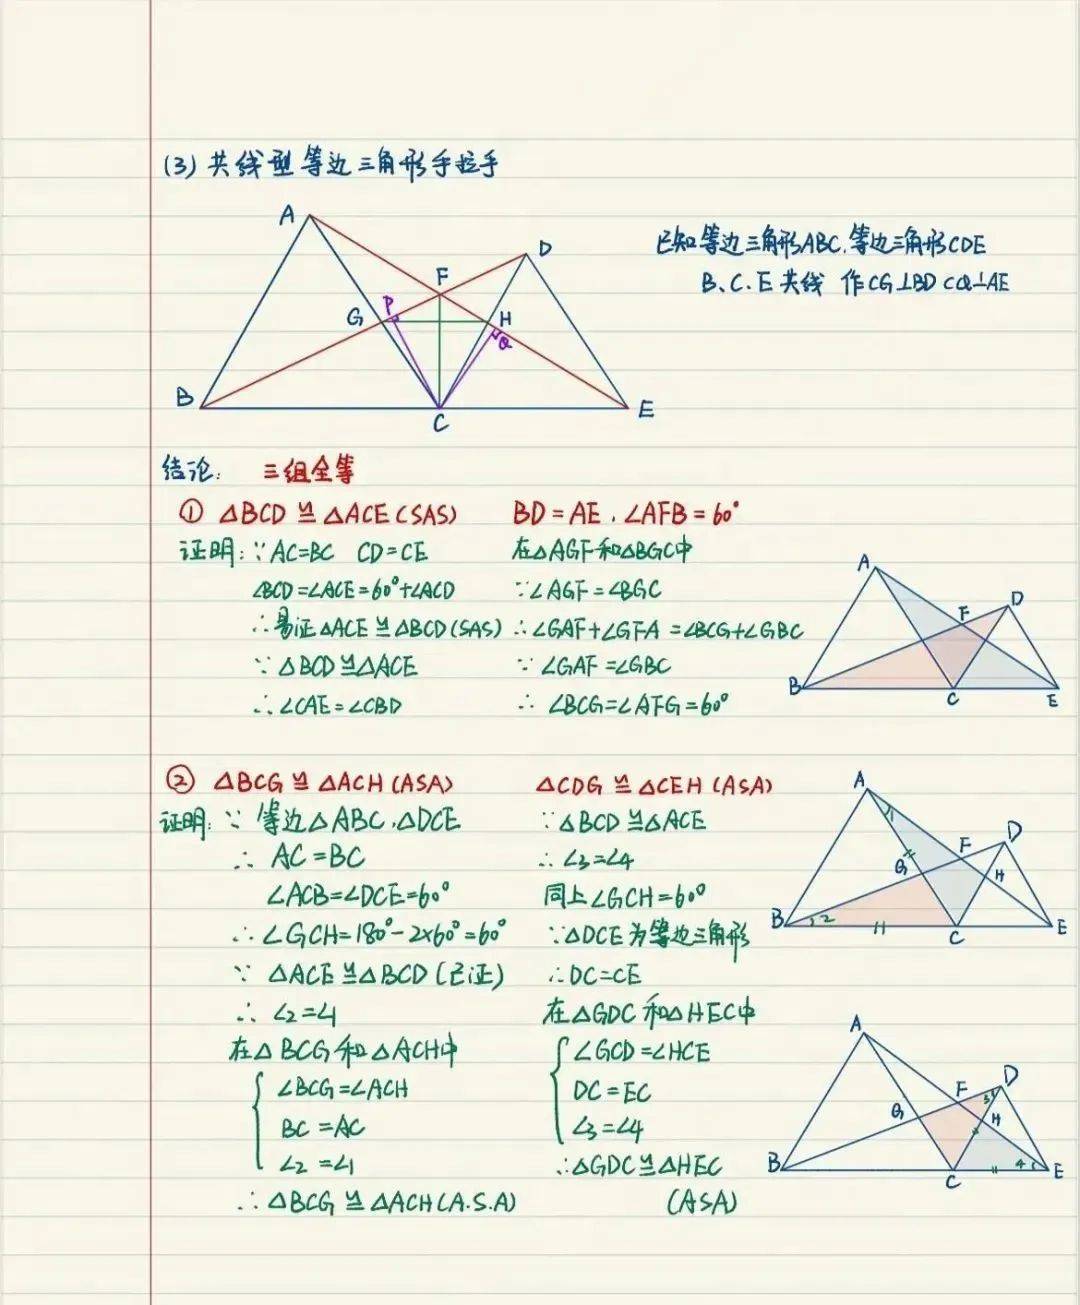 (3) 共线型等边三角形手拉手
A
D
F
P
G
H
Q
B
C
E
已知等边三角形ABC.等边三角形CDE
B、C、E共线 作CG⊥BD CQ⊥AE
结论: 三组全等
① △BCD≌△ACE(SAS) BD=AE.∠AFB=60°
证明:∵AC=BC CD=CE
∠BCD=∠ACE=60°+∠ACD
∴易证△ACE≌△BCD(SAS)
∵△BCD≌△ACE
∴∠CAE=∠CBD
在△AGF和△BGC中
∵∠AGF=∠BGC
∴∠GAF+∠GFA=∠BCG+∠GBC
∵∠GAF=∠GBC
∴∠BCG=∠AFG=60°
A
F
D
B
C
E
② △BCG≌△ACH(ASA) △CDG≌△CEH(ASA)
证明:∵等边△ABC.△DCE
∴AC=BC
∠ACB=∠DCE=60°
∴∠GCH=180°-2×60°=60°
∵△ACE≌△BCD(已证)
∴∠2=∠1
在△BCG和△ACH中
∠BCG=∠ACH
BC=AC
∠2=∠1
∴△BCG≌△ACH(A.S.A)
∵△BCD≌△ACE
∴∠3=∠4
同上∠GCH=60°
∵△DCE为等边三角形
∴DC=CE
在△GDC和△HEC中
∠GCD=∠HCE
DC=EC
∠3=∠4
∴△GDC≌△HEC
(ASA)
A
1
F
D
G
H
B
2
C
E
A
F
D
3
G
H
B
4
C
E